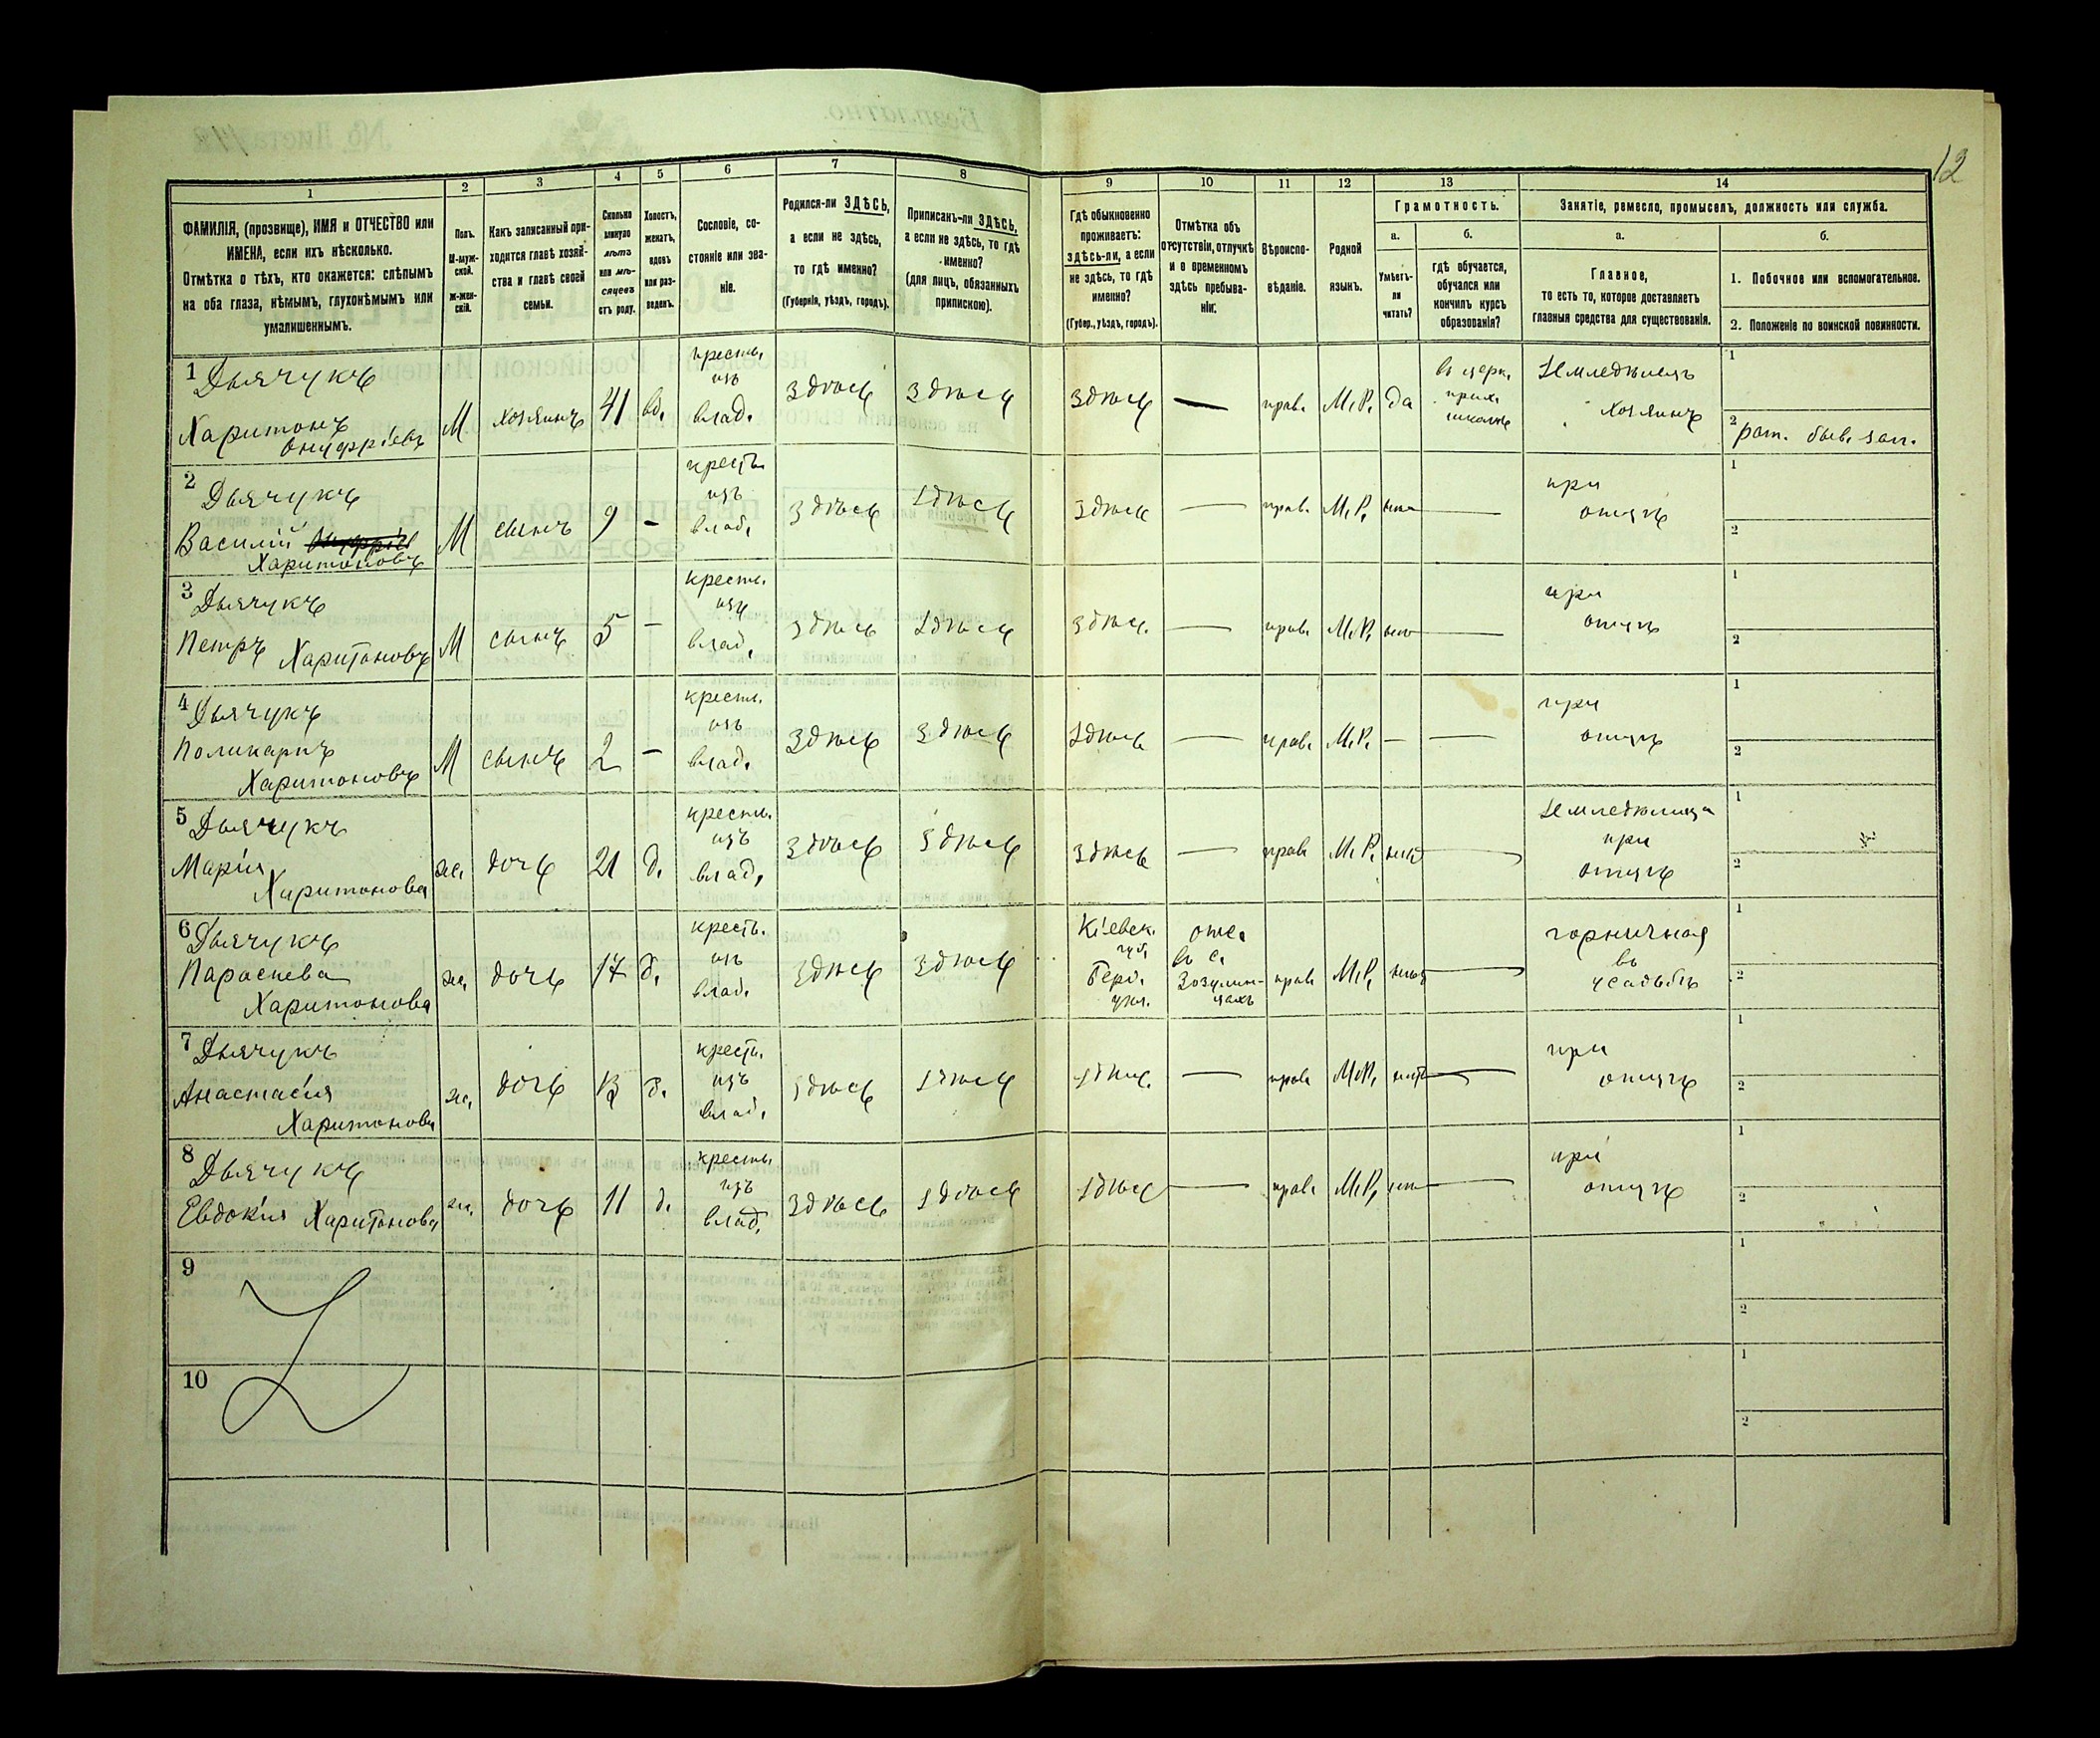 12
1 2 3 4 5 6 7 8 9 10 11 12 13 14
ФАМИЛІЯ, (прозвище), ИМЯ и ОТЧЕСТВО или
ИМЕНА, если ихъ нѣсколько.
Отмѣтка о тѣхъ, кто окажется: слѣпымъ
на оба глаза, нѣмымъ, глухонѣмымъ или
умалишеннымъ.
Полъ.
М-муж-
ской.
ж-жен-
скій.
Какъ записанный при-
ходится главѣ хозяй-
ства и главѣ своей
семьи.
Сколько
минуло
лѣтъ
или мѣ-
сяцевъ
отъ роду.
Холостъ,
женатъ,
вдовъ
или раз-
веденъ.
Сословіе, со-
стояніе или зва-
ніе.
Родился-ли ЗДѢСЬ,
а если не здѣсь,
то гдѣ именно?
(Губернія, уѣздъ, городъ).
Приписанъ-ли ЗДѢСЬ,
а если не здѣсь, то гдѣ
именно?
(для лицъ, обязанныхъ
припискою).
Гдѣ обыкновенно
проживаетъ:
здѣсь-ли, а если
не здѣсь, то гдѣ
именно?
(Губер., уѣздъ, городъ).
Отмѣтка объ
отсутствіи, отлучкѣ
и о временномъ
здѣсь пребыва-
ніи.
Вѣроиспо-
вѣданіе.
Родной
языкъ.
Грамотность.
а.
Умѣетъ-
ли
читать?
б.
гдѣ обучается,
обучался или
кончилъ курсъ
образованія?
Занятіе, ремесло, промыселъ, должность или служба.
а.
Главное,
то есть то, которое доставляетъ
главныя средства для существованія.
б.
1. Побочное или вспомогательное.
2. Положеніе по воинской повинности.
1 Дьячукъ
Харитонъ
Онуфріевъ
М хозяинъ 41 вд.
крестьн.
изъ
влад.
здѣсь здѣсь здѣсь — прав. М.Р. да
въ церк.
прих.
школѣ
Земледѣлецъ
хозяинъ
1
2 рат. быв. зап.
2 Дьячукъ
Василій Онуфріев
Харитоновъ
М сынъ 9 -
крестьн.
изъ
влад.
здѣсь здѣсь здѣсь — прав. М.Р. нѣтъ —
при
отцѣ
1
2
3 Дьячукъ
Петръ Харитоновъ
М сынъ 5 -
крестьн.
изъ
влад.
здѣсь здѣсь здѣсь — прав. М.Р. нѣтъ —
при
отцѣ
1
2
4 Дьячукъ
Поликарпъ
Харитоновъ
М сынъ 2 -
крестьн.
изъ
влад.
здѣсь здѣсь здѣсь — прав. М.Р. — —
при
отцѣ
1
2
5 Дьячукъ
Марія
Харитонова
ж. дочь 21 д.
крестьн.
изъ
влад.
здѣсь здѣсь здѣсь — прав. М.Р. нѣтъ —
Земледѣлица
при
отцѣ
1
2
6 Дьячукъ
Параскева
Харитонова
ж. дочь 17 д.
крестьн.
изъ
влад.
здѣсь здѣсь
Кіевск.
губ.
Берд.
уѣз.
отл.
въ с.
Зозулин-
цахъ
прав. М.Р. нѣтъ —
горничная
въ
усадьбѣ
1
2
7 Дьячукъ
Анастасія
Харитонова
ж. дочь 13 д.
крестьн.
изъ
влад.
здѣсь здѣсь здѣсь — прав. М.Р. нѣтъ —
при
отцѣ
1
2
8 Дьячукъ
Евдокія Харитонова
ж. дочь 11 д.
крестьн.
изъ
влад.
здѣсь здѣсь здѣсь — прав. М.Р. нѣтъ —
при
отцѣ
1
2
9
1
2
10
1
2